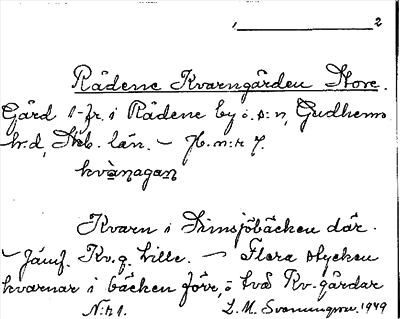 2
Rådene Kvarngården Store.
Gård 1-fr. i Rådene by o. s:n, Gudhems
h:d, Skb. län. – Jb. n:r 7.
kvànagan
Kvarn i Simsjöbäcken där.
– Jämf. Kv.g. Lille. – Flera stycken
kvarnar i bäcken förr, o två Kv.gårdar
N:r 1. L. M. Svenungson 1949